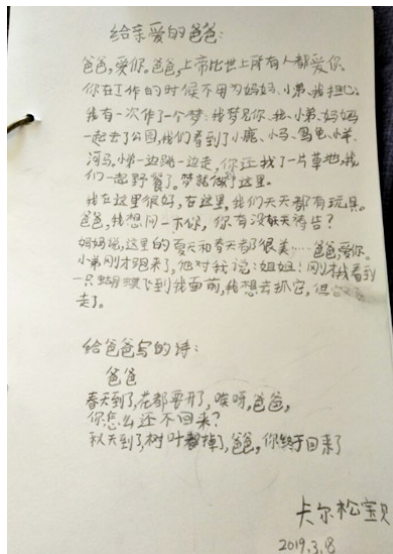 给亲爱的爸爸:
爸爸,爱你。爸爸,上帝比世上所有人都爱你
你在工作的时候不用为妈妈、小弟、我担心。
我有一次作了一个梦:我梦见你、我、小弟、妈妈
一起去了公园,我们看到了小鹿、小马、鸟龟、小羊、
河马。小弟一边跳一边走,你还找了一片草地,我
们一起野餐了。梦就做了这里。
我在这里很好,在这里,我们天天都有玩具。
爸爸,我想问一下你,你有没有天天祷告?
妈妈说,这里的夏天和春天都很美……爸爸,爱你。
小弟刚才跑来了,他对我说:姐姐!刚才我看到
一只蝴蝶飞到我面前,我想去抓它,但
走了。
给爸爸写的诗:
爸爸
春天到了,花都要开了,唉呀,爸爸,
你怎么还不回来?
秋天到了,树叶都掉了,爸爸,你终于回来了
卡尔松宝贝
2019.3.8